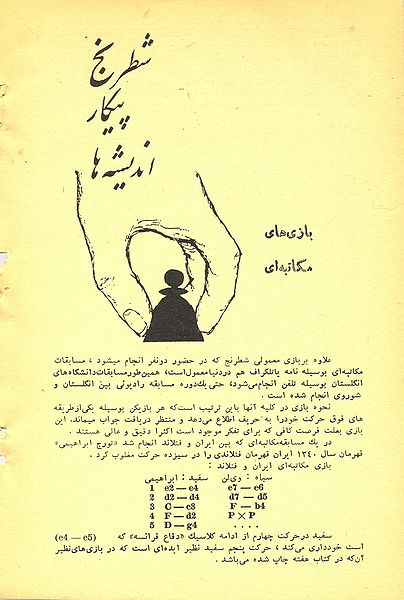 شطرنج
پیکار
اندیشه‌ها
بازی‌های
مکاتبه‌ای
علاوه بربازی معمولی شطرنج که در حضور دونفر انجام میشود ، مسابقات
مکاتبه‌ای بوسیله نامه یاتلگراف هم دردنیامعمول‌است، همین‌طورمسابقات‌دانشگاه‌های
انگلستان بوسیله تلفن انجام‌می‌شود، حتی‌یك‌دوره مسابقه رادیوئی بین انگلستان و
شوروی انجام شده است .
نحوه بازی در کلیه آنها باین ترتیب‌است‌که هر بازیکن بوسیله یکی‌ازطریقه
های فوق حرکت خودرا به حریف اطلاع می‌دهد و منتظر دریافت جواب میماند. این
بازی بعلت فرصت کافی که برای تفکر موجود است اکثرا دقیق و عالی هستند .
در یك مسابقه‌مکاتبه‌ای که بین ایران و فنلاند انجام شد «تورج ابراهیمی»
قهرمان سال ۱۳۴۰ ایران قهرمان فنلاندی را در سیزده حرکت مغلوب کرد .
بازی مکاتبه‌ای ایران و فنلاند :
سفید : ابراهیمی سیاه : وی‌لن
1 e2 — e4 e7 — e6
2 d2 — d4 d7 — d5
3 C — c3 F — b4
4 F — d2 P × P
5 D — g4 . . . .
سفید درحرکت چهارم از ادامه کلاسیك «دفاع فرانسه» که (e4 — e5)
است خودداری می‌کند ، حرکت پنجم سفید نظیر ایده‌ای است که در بازی‌های‌نظیر
آن‌که در کتاب هفته چاپ شده می‌باشد .